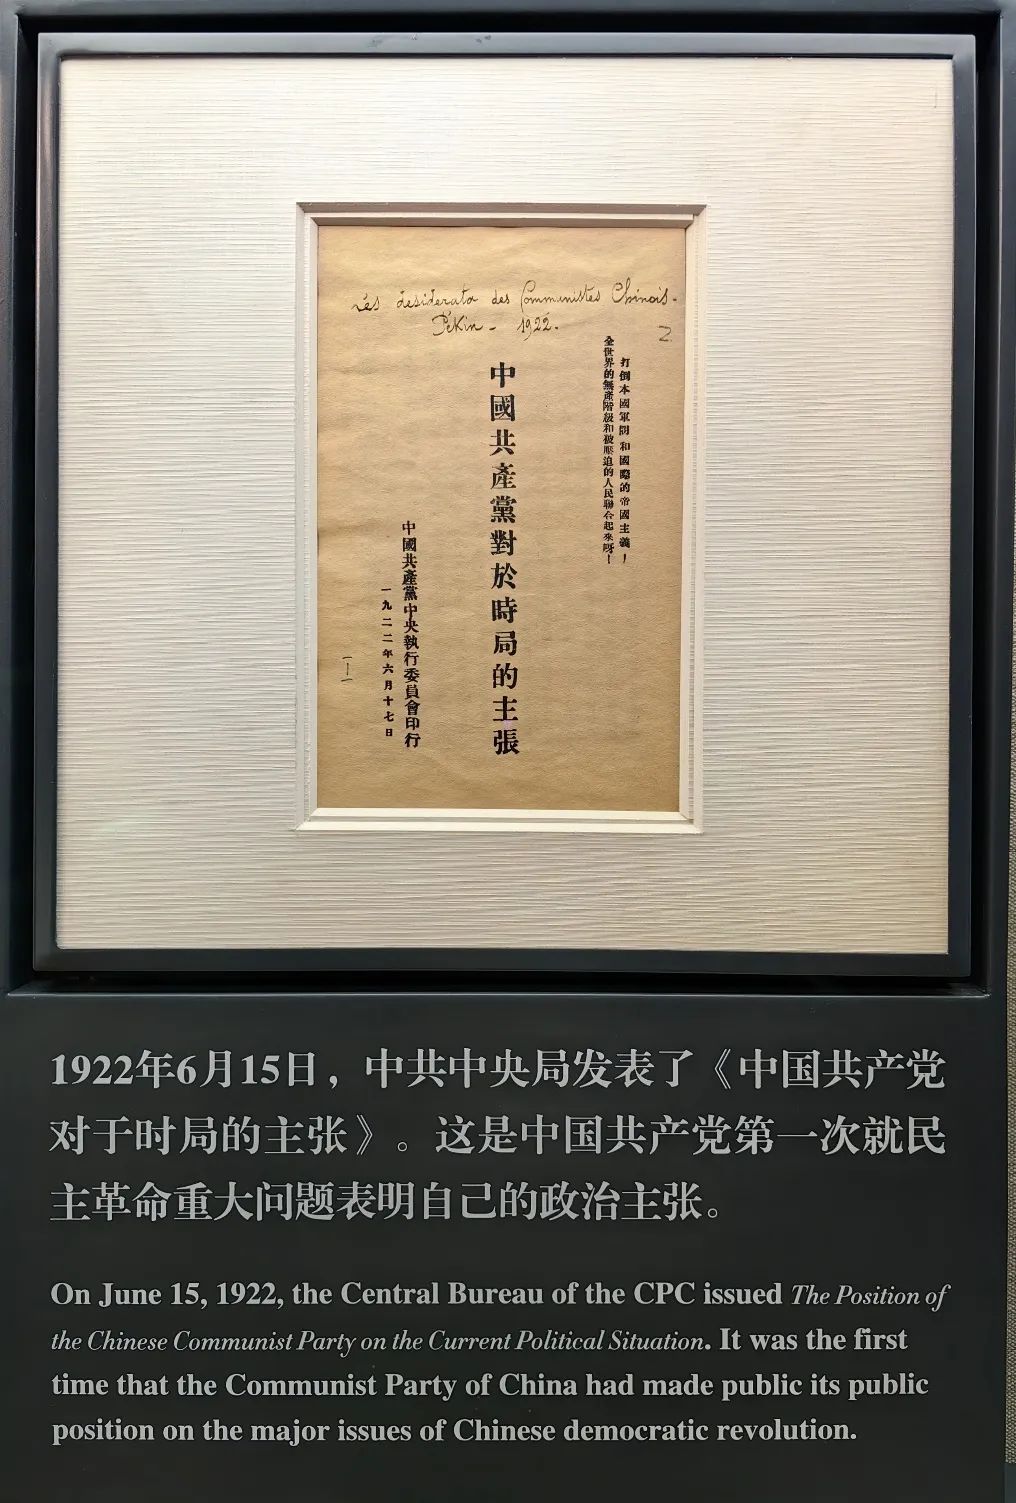 Les desiderata des Communistes Chinois.
Pékin - 1922.
2
打倒本國軍閥和國際的帝國主義！
全世界的無產階級和被壓迫的人民聯合起來呀！
中國共產黨對於時局的主張
中國共產黨中央執行委員會印行
一九二二年六月十七日
1922年6月15日，中共中央局发表了《中国共产党
对于时局的主张》。这是中国共产党第一次就民
主革命重大问题表明自己的政治主张。
On June 15, 1922, the Central Bureau of the CPC issued The Position of
the Chinese Communist Party on the Current Political Situation. It was the first
time that the Communist Party of China had made public its public
position on the major issues of Chinese democratic revolution.